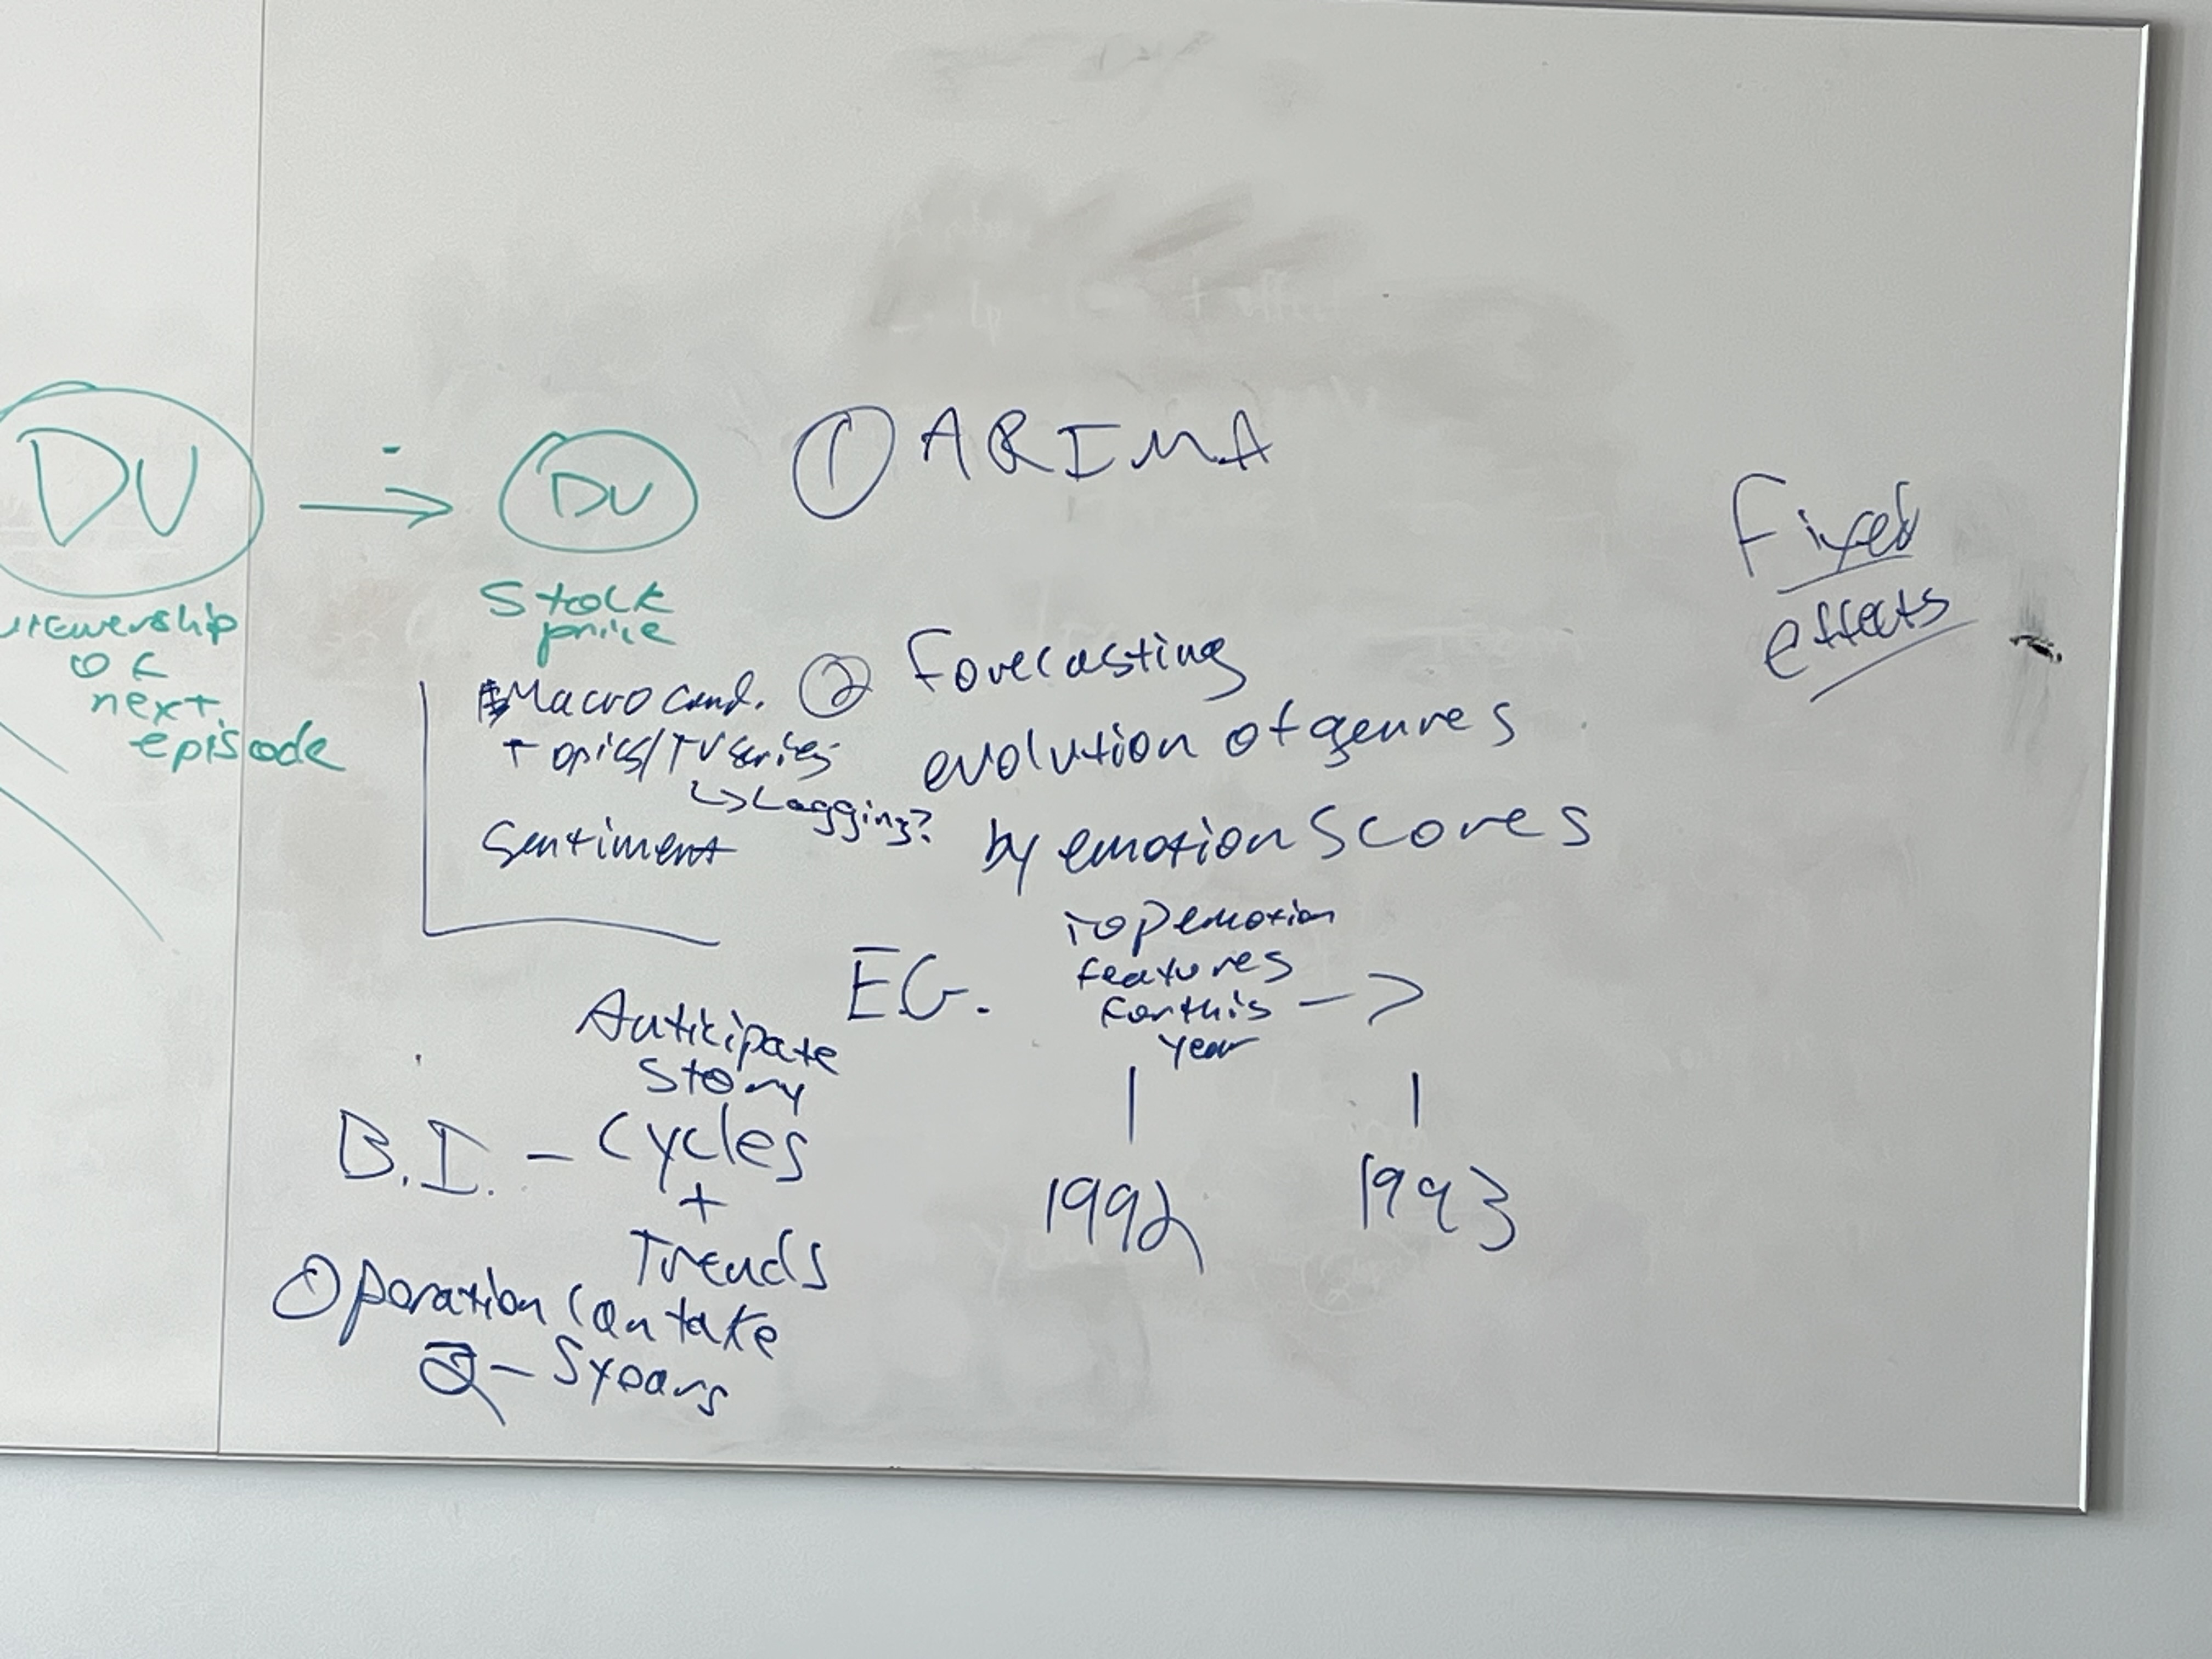 DV
viewership
of
next
episode
DV
Stock
price
① ARIMA
Fixed
effects
Macro cond.
Topics/TV series
↳ Lagging?
Sentiment
② Forecasting
evolution of genres
by emotion scores
E.G.
Top emotion
features
for this
year
->
1992
1993
Anticipate
Story
B.I. - Cycles
+
Trends
Operation can take
2-5 years